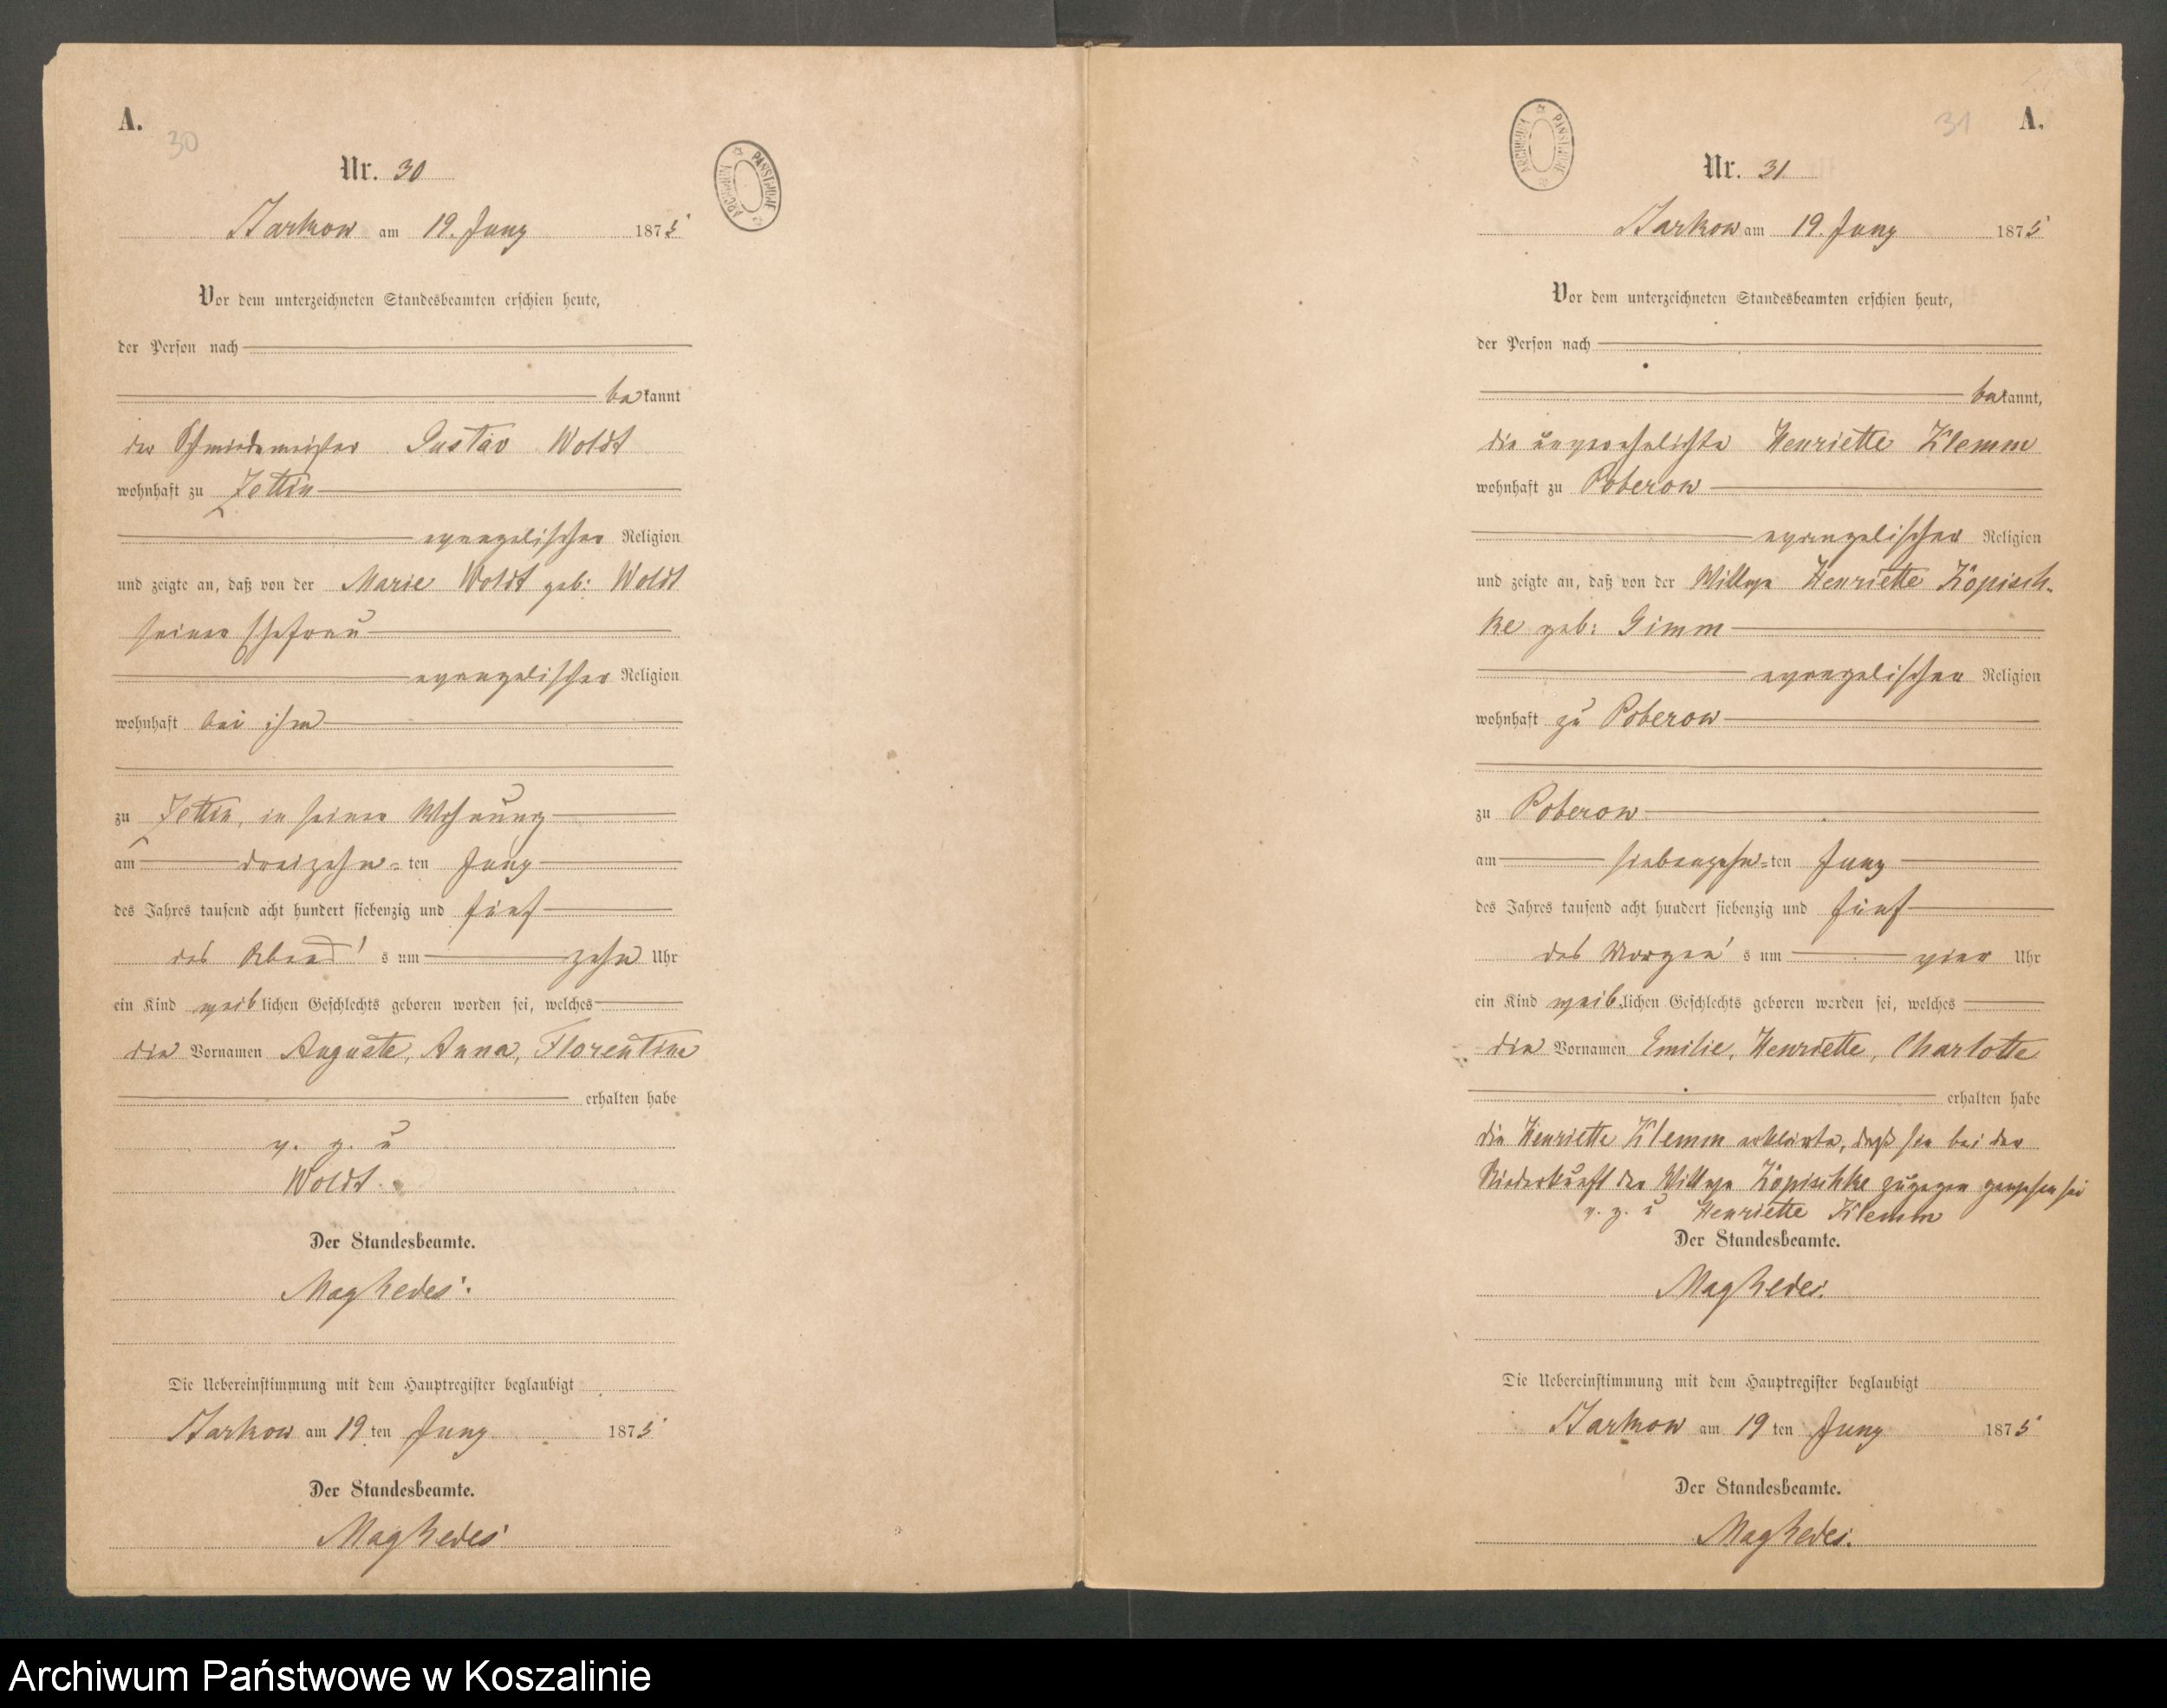 A.
30
Nr. 30
ARCHIWUM PAŃSTWOWE
Starkow am 19. Juny 1875
Vor dem unterzeichneten Standesbeamten erschien heute,
der Person nach
bekannt
der Schmiedemeister Gustav Woldt
wohnhaft zu Zettin
evangelischer Religion
und zeigte an, daß von der Marie Woldt geb: Woldt
seiner Ehefrau
evangelischer Religion
wohnhaft bei ihm
zu Zettin, in seiner Wohnung
am dreizehn-ten Juny
des Jahres tausend acht hundert siebenzig und fünf
des Abend's um zehn Uhr
ein Kind weiblichen Geschlechts geboren worden sei, welches
die Vornamen Auguste, Anna, Florentine
erhalten habe
v. g. u
Woldt.
Der Standesbeamte.
Die Uebereinstimmung mit dem Hauptregister beglaubigt
Starkow am 19 ten Juny 1875
Der Standesbeamte.
31
A.
Nr. 31
ARCHIWUM PAŃSTWOWE
Starkow am 19. Juny 1875
Vor dem unterzeichneten Standesbeamten erschien heute,
der Person nach
bekannt,
die unverehelichte Henriette Klemm
wohnhaft zu Poberow
evangelischer Religion
und zeigte an, daß von der Wittwe Henriette Köpisch-
ke geb: Gimm
evangelischer Religion
wohnhaft zu Poberow
zu Poberow
am siebenzehn-ten Juny
des Jahres tausend acht hundert siebenzig und fünf
des Morgen's um vier Uhr
ein Kind weiblichen Geschlechts geboren worden sei, welches
die Vornamen Emilie, Henriette, Charlotte
erhalten habe
die Henriette Klemm erklärte, daß sie bei der
Niederkunft der Wittwe Köpischke zugegen gewesen sei
v. g. u Henriette Klemm
Der Standesbeamte.
Die Uebereinstimmung mit dem Hauptregister beglaubigt
Starkow am 19 ten Juny 1875
Der Standesbeamte.
Archiwum Państwowe w Koszalinie